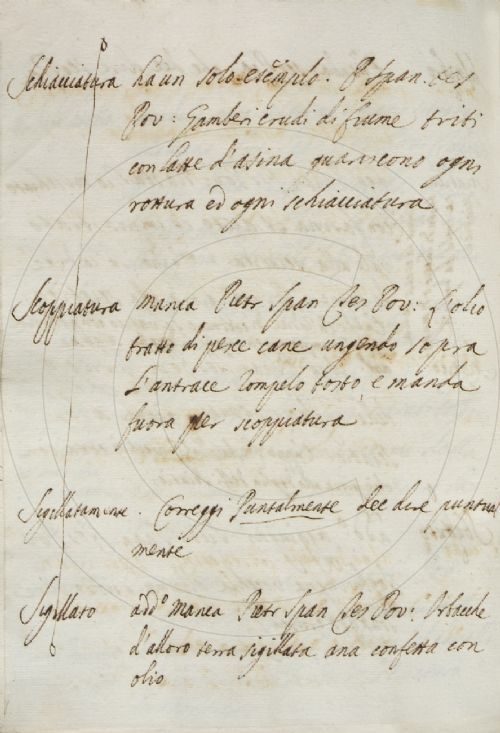 Schiacciatura ha un solo esempio. P Span. Tes
Pov: Gamberi crudi di fiume triti
con latte d'asina guariscono ogni
rottura ed ogni schiacciatura
Scoppiatura manca Pietr Span Tes Pov: L'olio
tratto di pesce cane ungendo sopra
L'antrace rompelo tosto, e manda
fuora per scoppiatura
Sigillatamente. Correggi Puntalmente dee dire puntual
mente
Sigillato add.o manca Pietr Span Tes Pov:
d'alloro terra sigillata ana confetta con
olio